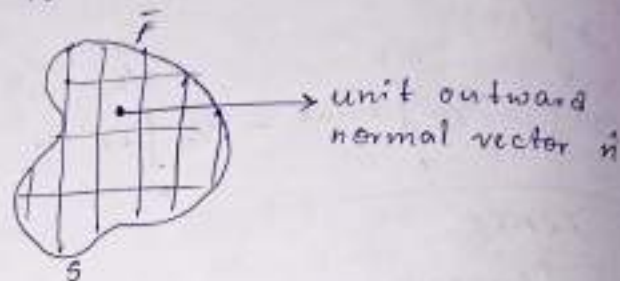 F̄
unit outward
normal vector n̂
S